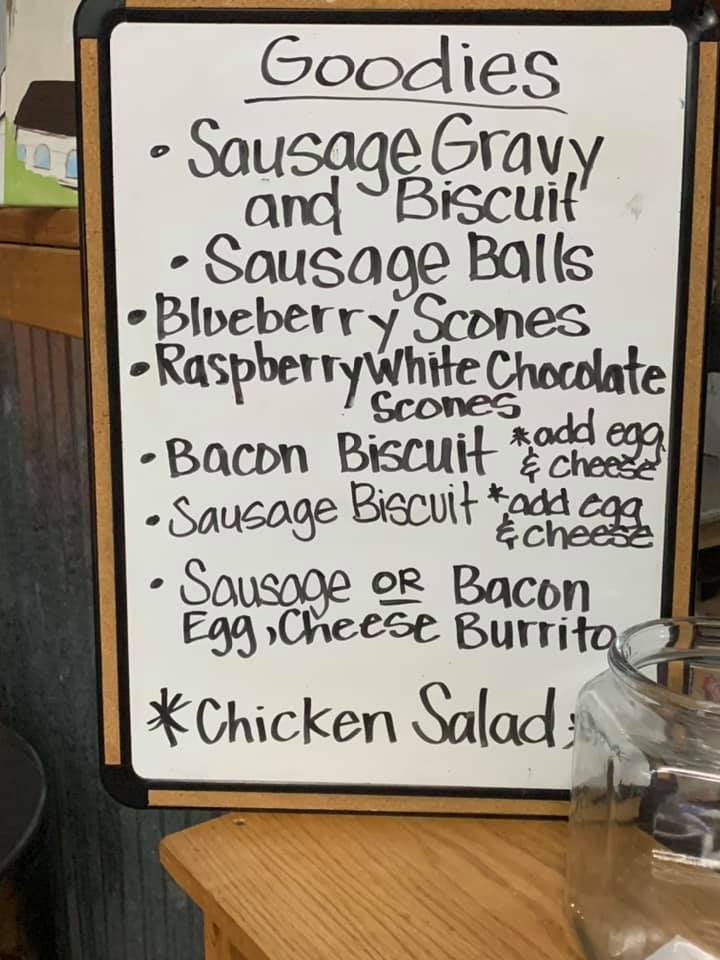 Goodies
• Sausage Gravy
and Biscuit
• Sausage Balls
• Blueberry Scones
• Raspberry White Chocolate
Scones
• Bacon Biscuit *add egg
& cheese
• Sausage Biscuit *add egg
& cheese
• Sausage OR Bacon
Egg, Cheese Burrito
*Chicken Salad*